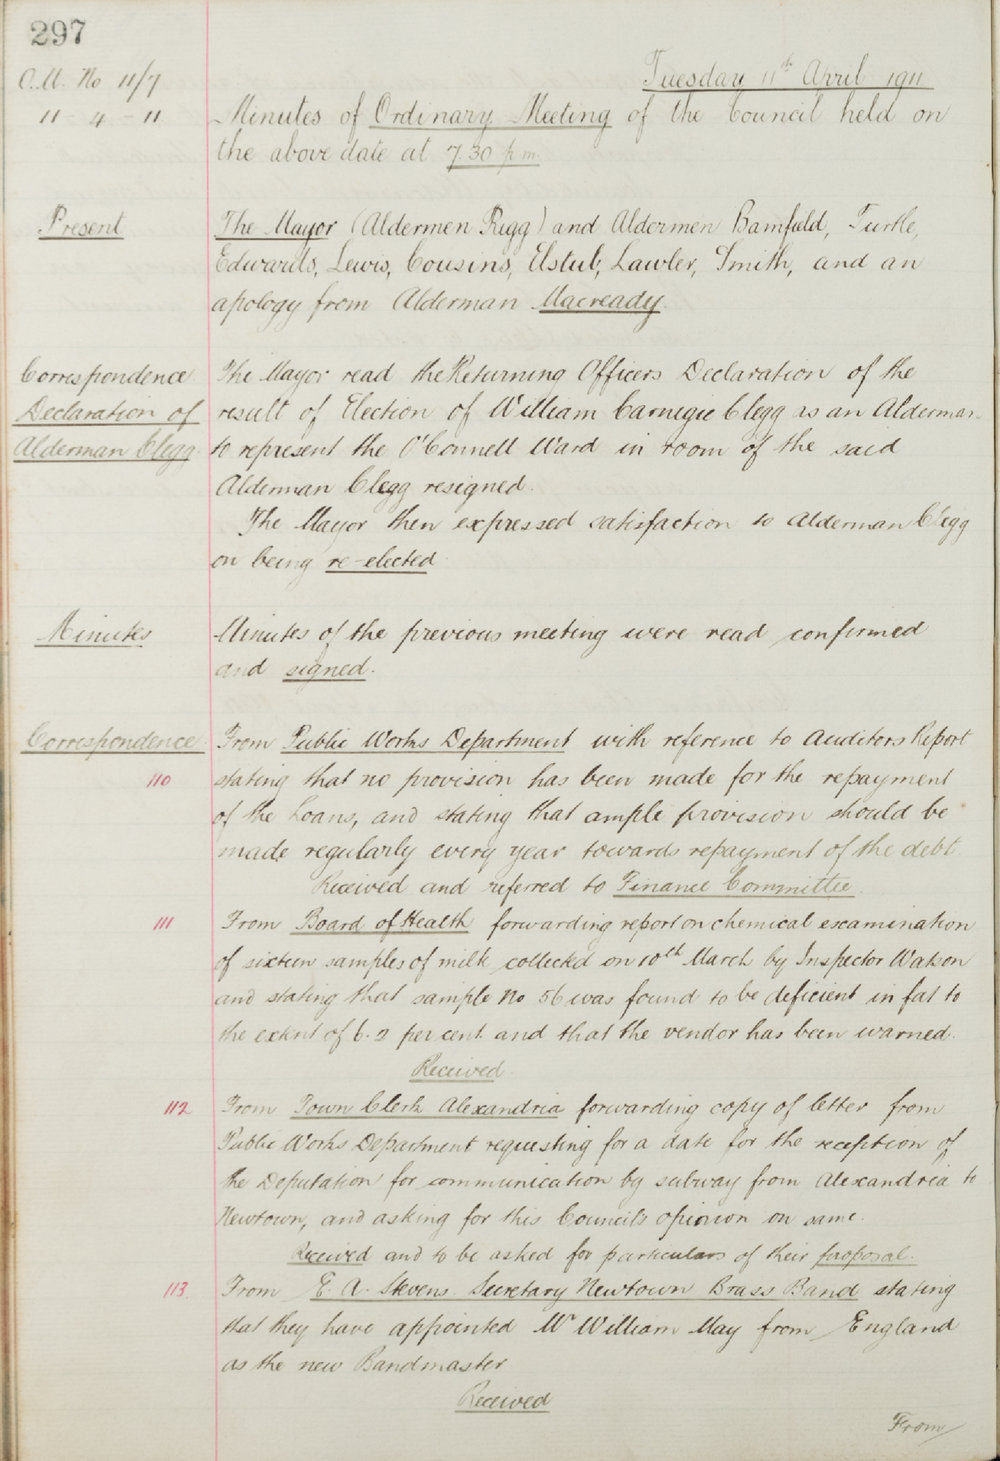 297
C.M. No 11/7
11 - 4 - 11
Tuesday 11th April 1911
Minutes of Ordinary Meeting of the Council held on
the above date at 7.30 p.m.
Present
The Mayor (Aldermen Rigg) and Aldermen Bamfield, Turtle,
Edwards, Lewis, Cousins, Elstub, Lawler, Smith, and an
apology from Alderman Macready.
Correspondence
Declaration of
Alderman Clegg.
The Mayor read the Returning Officers Declaration of the
result of Election of William Carnegie Clegg as an Alderman
to represent the O'Connell Ward in room of the said
Alderman Clegg resigned.
The Mayor then expressed satisfaction to Alderman Clegg
on being re-elected.
Minutes
Minutes of the previous meeting were read confirmed
and signed.
Correspondence
From Public Works Department with reference to Auditors Report
110
stating that no provision has been made for the repayment
of the Loans, and stating that ample provision should be
made regularly every year towards repayment of the debt.
Received and referred to Finance Committee.
111
From Board of Health forwarding report on chemical examination
of sixteen samples of milk collected on 10th March by Inspector Watson
and stating that sample No 56 was found to be deficient in fat to
the extent of 6.2 per cent. and that the vendor has been warned.
Received.
112
From Town Clerk Alexandria forwarding copy of letter from
Public Works Department requesting for a date for the reception of
the Deputation for communication by subway from Alexandria to
Newtown, and asking for this Council's opinion on same.
Received and to be asked for particulars of their proposal.
113.
From E. A. Stevens Secretary Newtown Brass Band stating
that they have appointed Mr William May from England
as the new Bandmaster
Received
From/